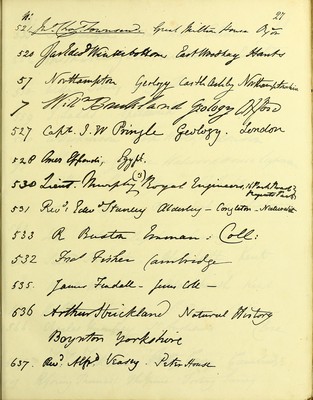 No. 27
521 Jno. Chas. Townsend Great Milton House Oxon
520 Winterbottom East Woodhay Hants
57 Northampton Geology Castle Ashby Northamptonshire
7 Wm Buckland Geology Oxford
527 Capt. J. W Pringle Geology. London
528 Omer Effendi, Egypt.
530 Lieut. Murphy (3) Royal Engineers
531 Revd. Edwd Stanley Alderley - Congleton - Naturalist
533 R Buxton Emman: Coll:
532 Fisher Cambridge
535. James Tindall - Jesus Coll -
636 Arthur Strickland Natural History
Boynton Yorkshire
637. Revd. Alfd. Veasey. Peter House